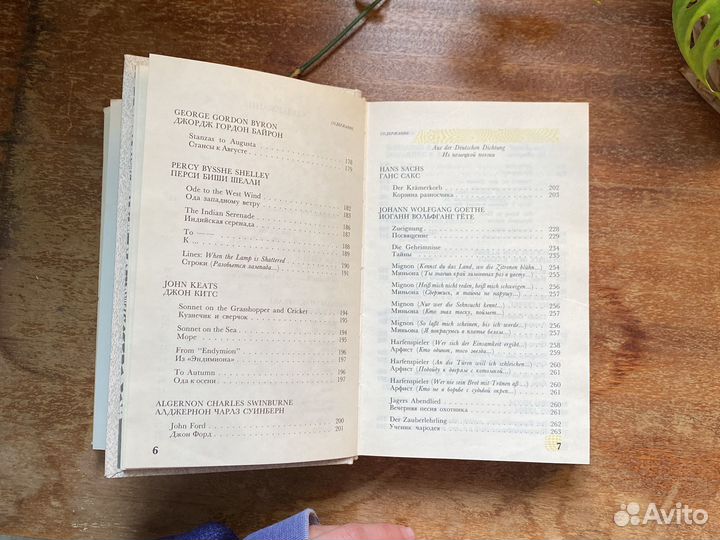 СОДЕРЖАНИЕ
GEORGE GORDON BYRON
ДЖОРДЖ ГОРДОН БАЙРОН
Stanzas to Augusta 178
Стансы к Августе 179
PERCY BYSSHE SHELLEY
ПЕРСИ БИШИ ШЕЛЛИ
Ode to the West Wind 182
Ода западному ветру 183
The Indian Serenade 186
Индийская серенада 187
To — 188
К ... 189
Lines: When the Lamp is Shattered 190
Строки (Разобьется лампада...) 191
JOHN KEATS
ДЖОН КИТС
Sonnet on the Grasshopper and Cricket 194
Кузнечик и сверчок 195
Sonnet on the Sea 194
Море 195
From "Endymion" 196
Из «Эндимиона» 197
To Autumn 196
Ода к осени 197
ALGERNON CHARLES SWINBURNE
АЛДЖЕРНОН ЧАРЛЗ СУИНБЕРН
John Ford 200
Джон Форд 201
6
СОДЕРЖАНИЕ
Aus der Deutschen Dichtung
Из немецкой поэзии
HANS SACHS
ГАНС САКС
Der Krämerkorb 202
Корзина разносчика 203
JOHANN WOLFGANG GOETHE
ИОГАНН ВОЛЬФГАНГ ГЁТЕ
Zueignung 228
Посвящение 229
Die Geheimnisse 234
Тайны 235
Mignon (Kennst du das Land, wo die Zitronen blühn...) 254
Миньона (Ты знаешь край лимонных рощ в цвету...) 255
Mignon (Heiß mich nicht reden, heiß mich schweigen...) 254
Миньона (Сдержись, я тайны не нарушу...) 255
Mignon (Nur wer die Sehnsucht kennt...) 256
Миньона (Кто знал тоску, поймет...) 257
Mignon (So laßt mich scheinen, bis ich werde...) 256
Миньона (Я покрасуюсь в платье белом...) 257
Harfenspieler (Wer sich der Einsamkeit ergibt...) 258
Арфист (Кто одинок, того звезда...) 259
Harfenspieler (An die Türen will ich schleichen...) 260
Арфист (Подойду к дверям с котомкой...) 261
Harfenspieler (Wer nie sein Brot mit Tränen aß...) 260
Арфист (Кто не в борьбе с судьбой окреп...) 261
Jägers Abendlied 260
Вечерняя песня охотника 261
Der Zauberlehrling 262
Ученик чародея 263
7
Avito